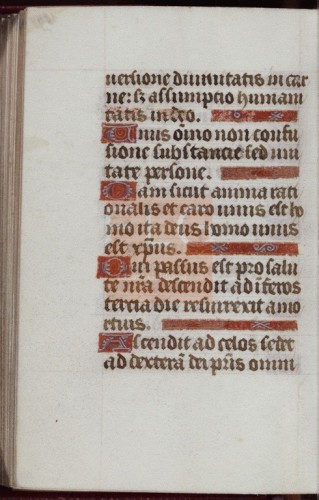 uersione diuinitatis in car
ne: sʒ assumpcio humani
tatis in deo.
Unus oı̃no non confu
sione substancie sed uni
tate persone.
Nam sicut anima rati
onalis et caro unus est ho
mo ita deus homo unus
est xp̃us.
Qui passus est pro salu
te nr̃a descendit ad ı̃feros
tercia die resurrexit a mo
rtuis.
Ascendit ad celos sedet
ad dexterã dei pr̃is omni